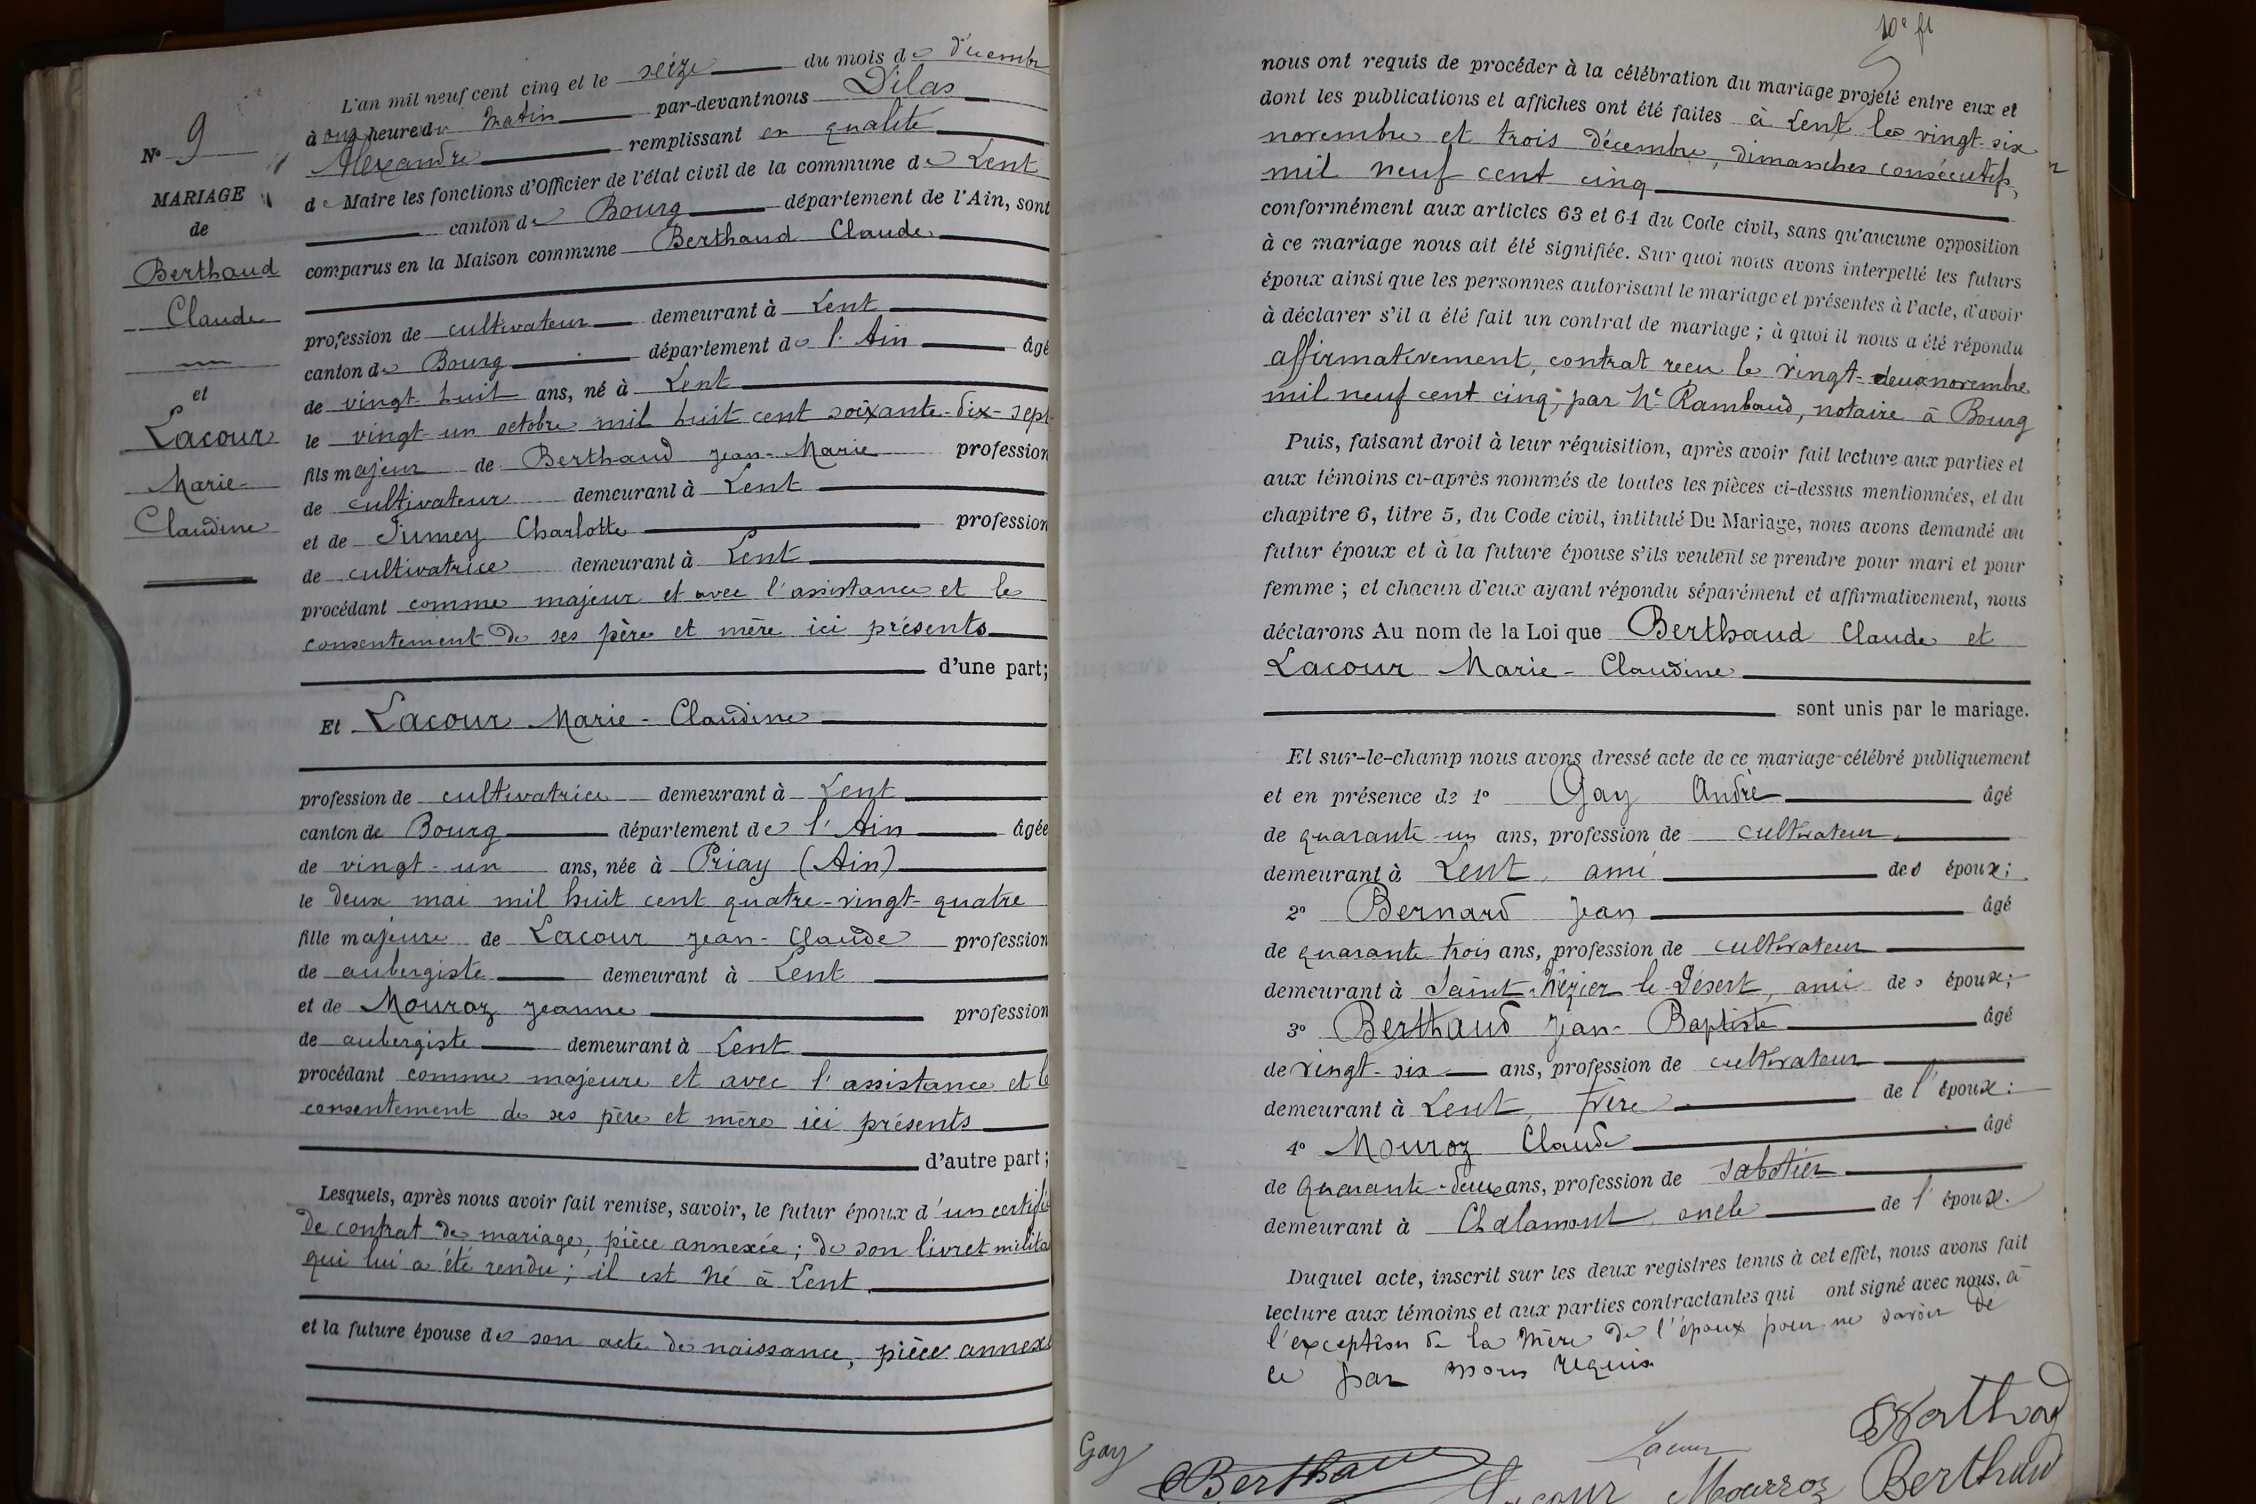 N° 9
MARIAGE
de
Berthaud
Claude
et
Lacour
Marie-
Claudine
L'an mil neuf cent cinq et le seize du mois de décembre
à onze heures du matin par-devant nous Dilas
Alexandre remplissant en qualité
de Maire les fonctions d'Officier de l'état civil de la commune de Lent
canton de Bourg département de l'Ain, sont
comparus en la Maison commune Berthaud Claude
profession de cultivateur demeurant à Lent
canton de Bourg département de l'Ain âgé
de vingt-huit ans, né à Lent
le vingt-un octobre mil huit cent soixante-dix-sept
fils majeur de Berthaud Jean-Marie profession
de cultivateur demeurant à Lent
et de Jumey Charlotte profession
de cultivatrice demeurant à Lent
procédant comme majeur et avec l'assistance et le
consentement de ses père et mère ici présents
d'une part;
Et Lacour Marie-Claudine
profession de cultivatrice demeurant à Lent
canton de Bourg département de l'Ain âgée
de vingt-un ans, née à Priay (Ain)
le deux mai mil huit cent quatre-vingt-quatre
fille majeure de Lacour Jean-Claude profession
de aubergiste demeurant à Lent
et de Mouroz Jeanne profession
de aubergiste demeurant à Lent
procédant comme majeure et avec l'assistance et le
consentement de ses père et mère ici présents
d'autre part;
Lesquels, après nous avoir fait remise, savoir, le futur époux d'un certifi
de contrat de mariage, pièce annexée; de son livret milita
qui lui a été rendu; il est né à Lent
et la future épouse de son acte de naissance, pièce annexé
10e ft
nous ont requis de procéder à la célébration du mariage projeté entre eux et
dont les publications et affiches ont été faites à Lent les vingt-six
novembre et trois décembre, dimanches consécutifs,
mil neuf cent cinq
conformément aux articles 63 et 64 du Code civil, sans qu'aucune opposition
à ce mariage nous ait été signifiée. Sur quoi nous avons interpellé les futurs
époux ainsi que les personnes autorisant le mariage et présentes à l'acte, d'avoir
à déclarer s'il a été fait un contrat de mariage; à quoi il nous a été répondu
affirmativement, contrat recu le vingt-deux novembre
mil neuf cent cinq; par Me Rambaud, notaire à Bourg
Puis, faisant droit à leur réquisition, après avoir fait lecture aux parties et
aux témoins ci-après nommés de toutes les pièces ci-dessus mentionnées, et du
chapitre 6, titre 5, du Code civil, intitulé Du Mariage, nous avons demandé au
futur époux et à la future épouse s'ils veulent se prendre pour mari et pour
femme; et chacun d'eux ayant répondu séparément et affirmativement, nous
déclarons Au nom de la Loi que Berthaud Claude et
Lacour Marie-Claudine
sont unis par le mariage.
Et sur-le-champ nous avons dressé acte de ce mariage célébré publiquement
et en présence de 1° Gay André âgé
de quarante-un ans, profession de cultivateur
demeurant à Lent, ami des époux;
2° Bernard Jean âgé
de quarante trois ans, profession de cultivateur
demeurant à Saint-Nizier-le-Désert, ami des époux;
3° Berthaud Jean-Baptiste âgé
de vingt-six ans, profession de cultivateur
demeurant à Lent, frère de l'époux:
4° Mouroz Claude âgé
de quarante-deux ans, profession de sabotier
demeurant à Chalamont, oncle de l'époux.
Duquel acte, inscrit sur les deux registres tenus à cet effet, nous avons fait
lecture aux témoins et aux parties contractantes qui ont signé avec nous, à
l'exception de la mère de l'époux pour ne savoir de
ce par nous requis
Gay
Berthaud
Lacour
Lacour
Mourroz
Berthaud
Berthaud